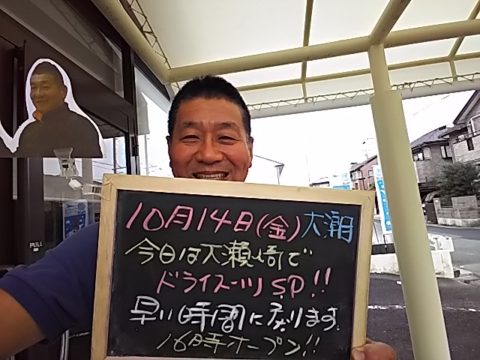 10月14日(金)大潮
今日は大瀬崎で
ドライスーツSP!!
早い時間に戻ります
16時オープン!!
PULL